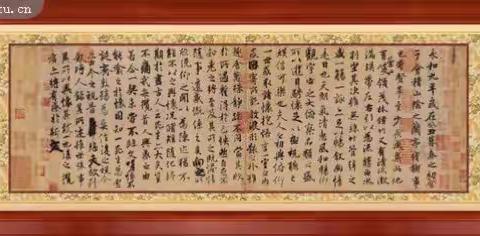 tu.cn
永和九年歲在癸丑暮春之初會
于會稽山陰之蘭亭脩禊事
也羣賢畢至少長咸集此地
有崇山峻領茂林脩竹又有清流激
湍暎帶左右引以為流觴曲水
列坐其次雖無絲竹管弦之
盛一觴一詠亦足以暢敘幽情
是日也天朗氣清惠風和暢仰
觀宇宙之大俯察品類之盛
所以遊目騁懷足以極視聽之
娛信可樂也夫人之相與俯仰
一世或取諸懷抱悟言一室之內
或因寄所託放浪形骸之外雖
趣舍萬殊靜躁不同當其欣
於所遇暫得於己快然自足不
知老之將至及其所之既惓情
隨事遷感慨係之矣向之所
欣俛仰之間以為陳迹猶不
能不以之興懷況脩短隨化終
期於盡古人云死生亦大矣豈
不痛哉每攬昔人興感之由
若合一契未嘗不臨文嗟悼不
能喻之於懷固知一死生為虛
誕齊彭殤為妄作後之視今
亦由今之視昔悲夫故列
敘時人錄其所述雖世殊事
異所以興懷其致一也後之攬
者亦將有感於斯文